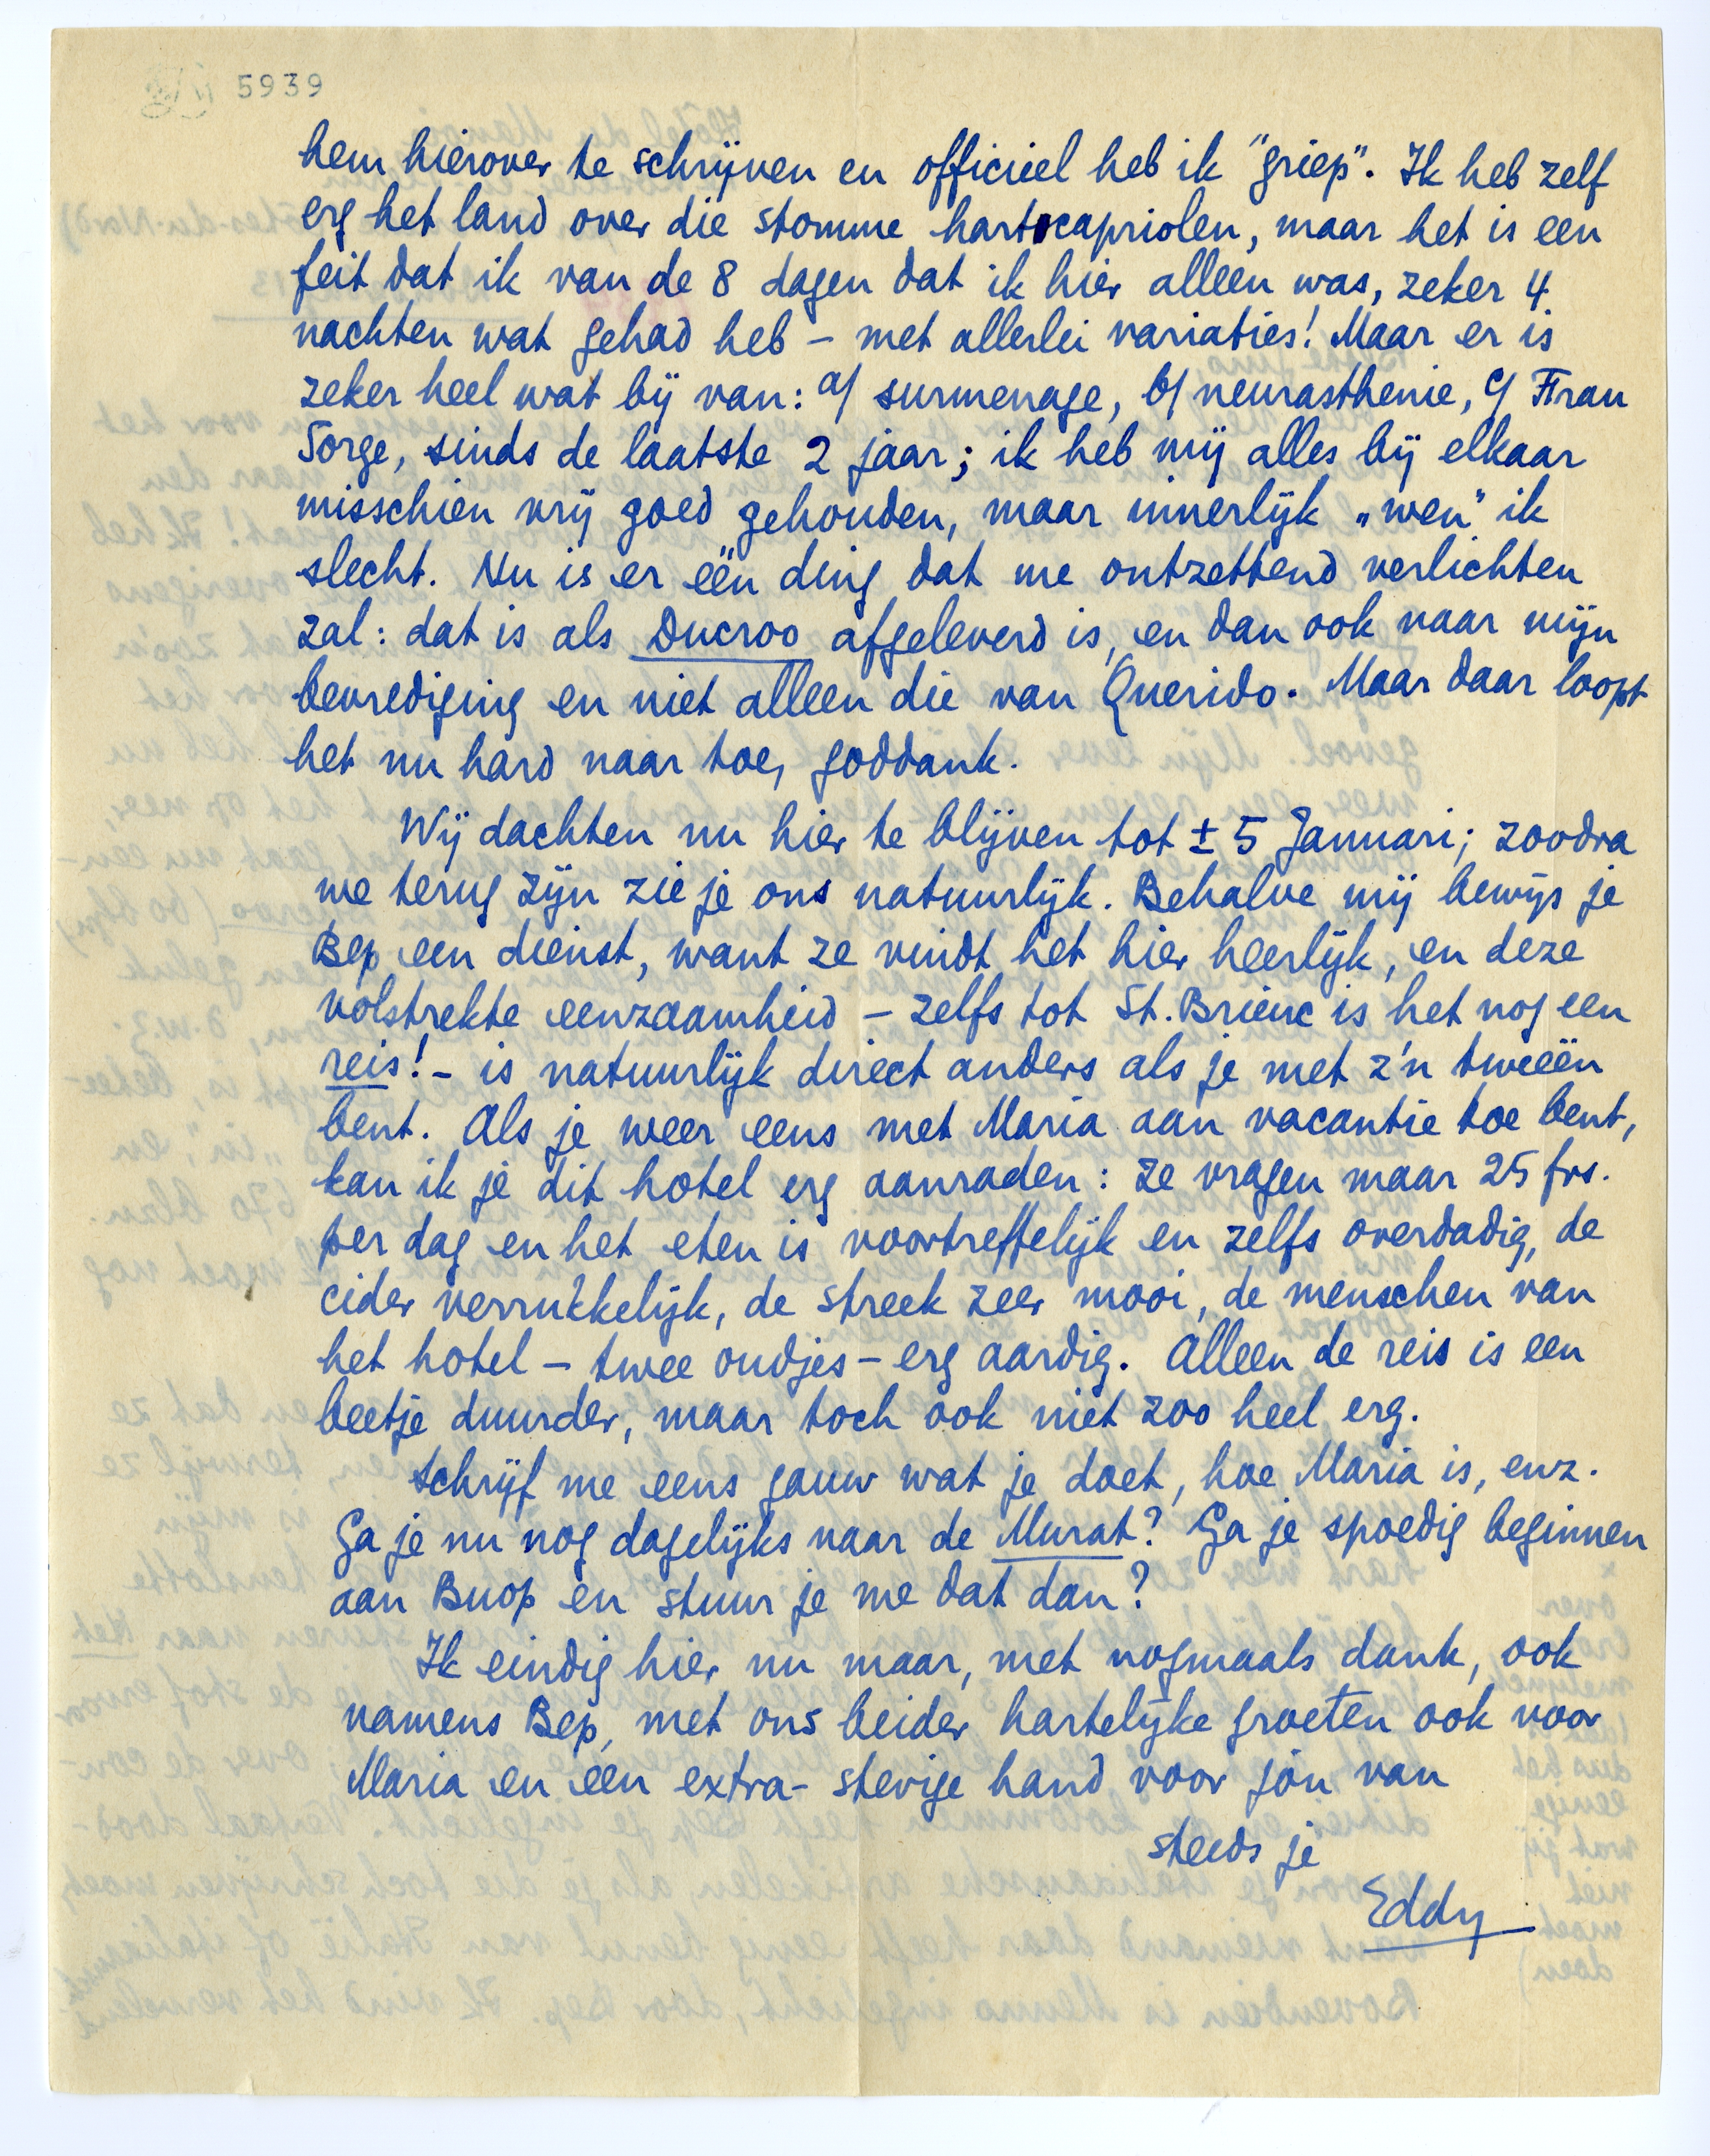 5939
hem hierover te schrijven en officieel heb ik "griep". Ik heb zelf
erg het land over die stomme hartcapriolen, maar het is een
feit dat ik van de 8 dagen dat ik hier alleen was, zeker 4
nachten wat gehad heb – met allerlei variaties! Maar er is
zeker heel wat bij van: a/ surmenage, b/ neurasthenie, c/ Frau
Sorge, sinds de laatste 2 jaar; ik heb mij alles bij elkaar
misschien vrij goed gehouden, maar innerlijk „wen" ik
slecht. Nu is er één ding dat me ontzettend verlichten
zal: dat is als Ducroo afgeleverd is, en dan ook naar mijn
bevrediging en niet alleen die van Querido. Maar daar loopt
het nu hard naar toe, goddank.
Wij dachten nu hier te blijven tot ± 5 Januari; zoodra
we terug zijn zie je ons natuurlijk. Behalve mij bewijs je
Bep een dienst, want ze vindt het hier heerlijk, en deze
volstrekte eenzaamheid – zelfs tot St. Brieuc is het nog een
reis! – is natuurlijk direct anders als je met z'n tweeën
bent. Als je weer eens met Maria aan vacantie toe bent,
kan ik je dit hotel erg aanraden: ze vragen maar 25 frs.
per dag en het eten is voortreffelijk en zelfs overdadig, de
cider verrukkelijk, de streek zeer mooi, de menschen van
het hotel – twee oudjes – erg aardig. Alleen de reis is een
beetje duurder, maar toch ook niet zoo heel erg.
Schrijf me eens gauw wat je doet, hoe Maria is, enz.
Ga je nu nog dagelijks naar de Murat? Ga je spoedig beginnen
aan Buop en stuur je me dat dan?
Ik eindig hier nu maar, met nogmaals dank, ook
namens Bep, met ons beider hartelijke groeten ook voor
Maria en een extra-stevige hand voor jou van
steeds je
Eddy